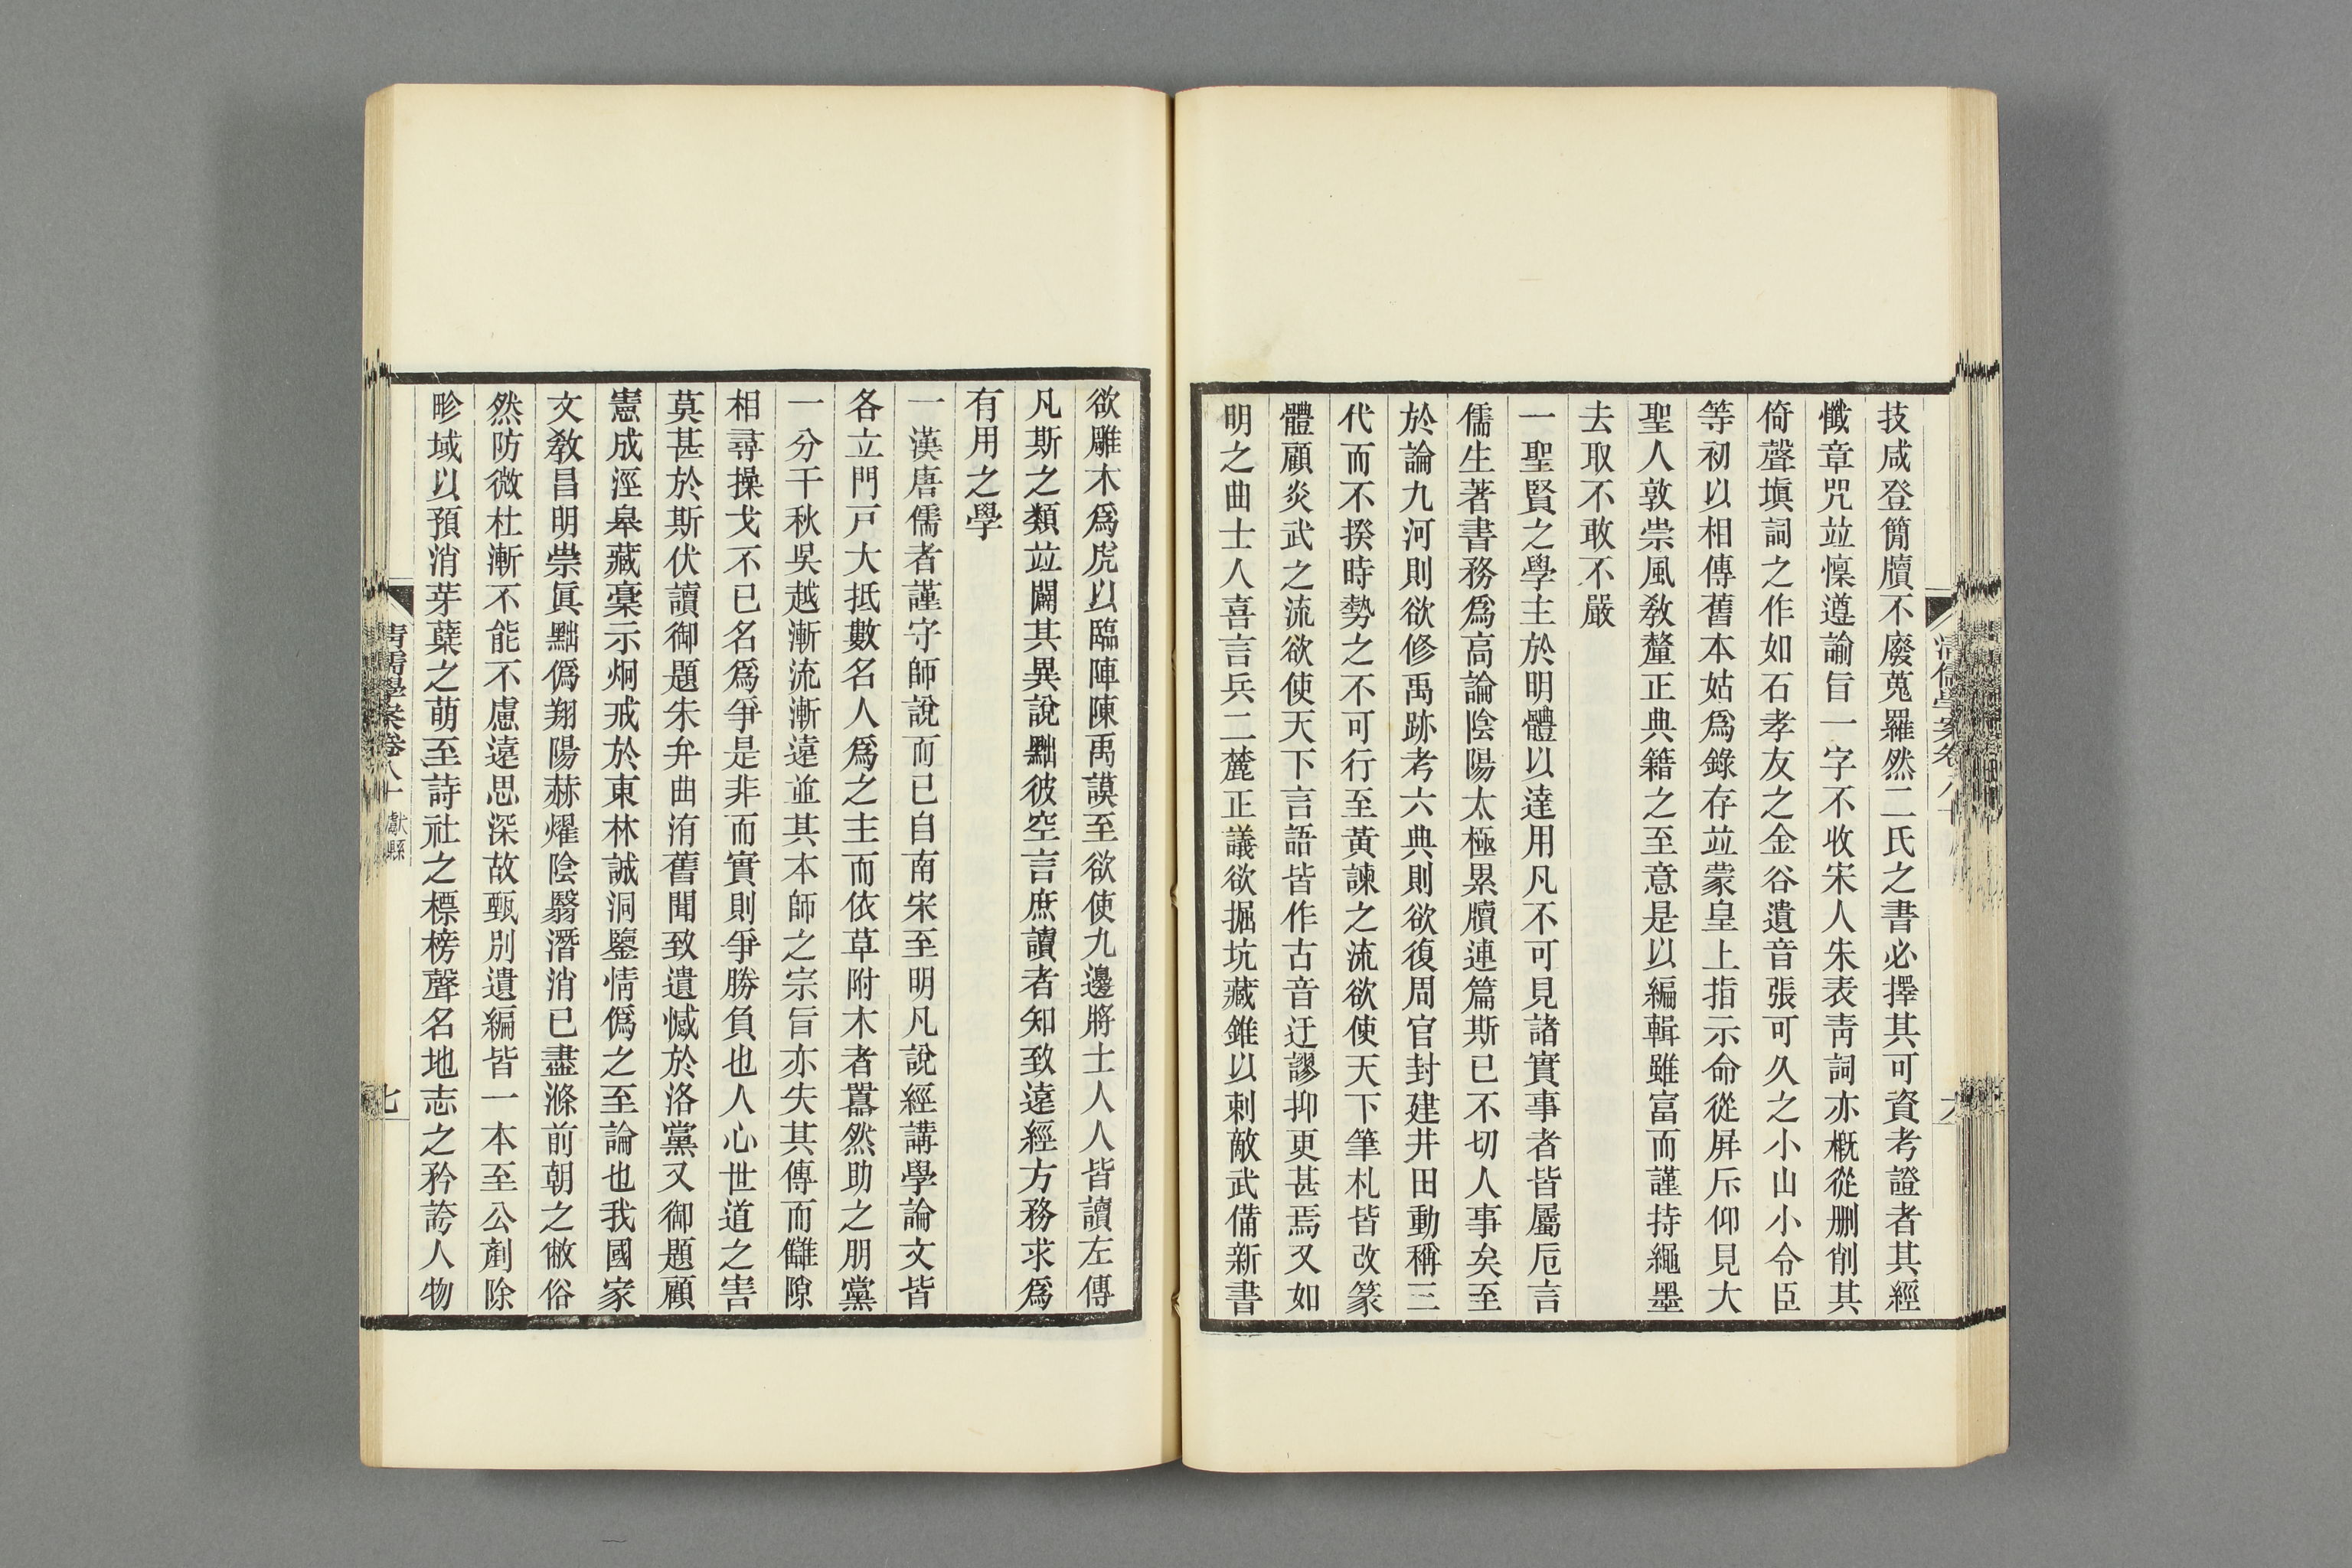 技咸登簡牘不廢蒐羅然二氏之書必擇其可資考證者其經
懺章咒竝懍遵諭旨一字不收宋人朱表靑詞亦槪從删削其
倚聲塡詞之作如石孝友之金谷遺音張可久之小山小令臣
等初以相傳舊本姑爲錄存竝蒙皇上指示命從屏斥仰見大
聖人敦崇風敎釐正典籍之至意是以編輯雖富而謹持繩墨
去取不敢不嚴
一聖賢之學主於明體以達用凡不可見諸實事者皆屬卮言
儒生著書務爲高論陰陽太極累牘連篇斯已不切人事矣至
於論九河則欲修禹跡考六典則欲復周官封建井田動稱三
代而不揆時勢之不可行至黃諫之流欲使天下筆札皆改篆
體顧炎武之流欲使天下言語皆作古音迂謬抑更甚焉又如
明之曲士人喜言兵二麓正議欲掘坑藏錐以刺敵武備新書
欲雕木爲虎以臨陣陳禹謨至欲使九邊將士人人皆讀左傳
凡斯之類竝闢其異說黜彼空言庶讀者知致遠經方務求爲
有用之學
一漢唐儒者謹守師說而已自南宋至明凡說經講學論文皆
各立門戸大抵數名人爲之主而依草附木者囂然助之朋黨
一分千秋吳越漸流漸遠並其本師之宗旨亦失其傳而讎隙
相尋操戈不已名爲爭是非而實則爭勝負也人心世道之害
莫甚於斯伏讀御題朱弁曲洧舊聞致遺憾於洛黨又御題顧
憲成涇皋藏稾示炯戒於東林誠洞鑒情僞之至論也我國家
文敎昌明崇眞黜僞翔陽赫燿陰翳潛消已盡滌前朝之敝俗
然防微杜漸不能不慮遠思深故甄別遺編皆一本至公剷除
畛域以預消芽蘖之萌至詩社之標榜聲名地志之矜誇人物
清儒學案卷八十 獻縣
七